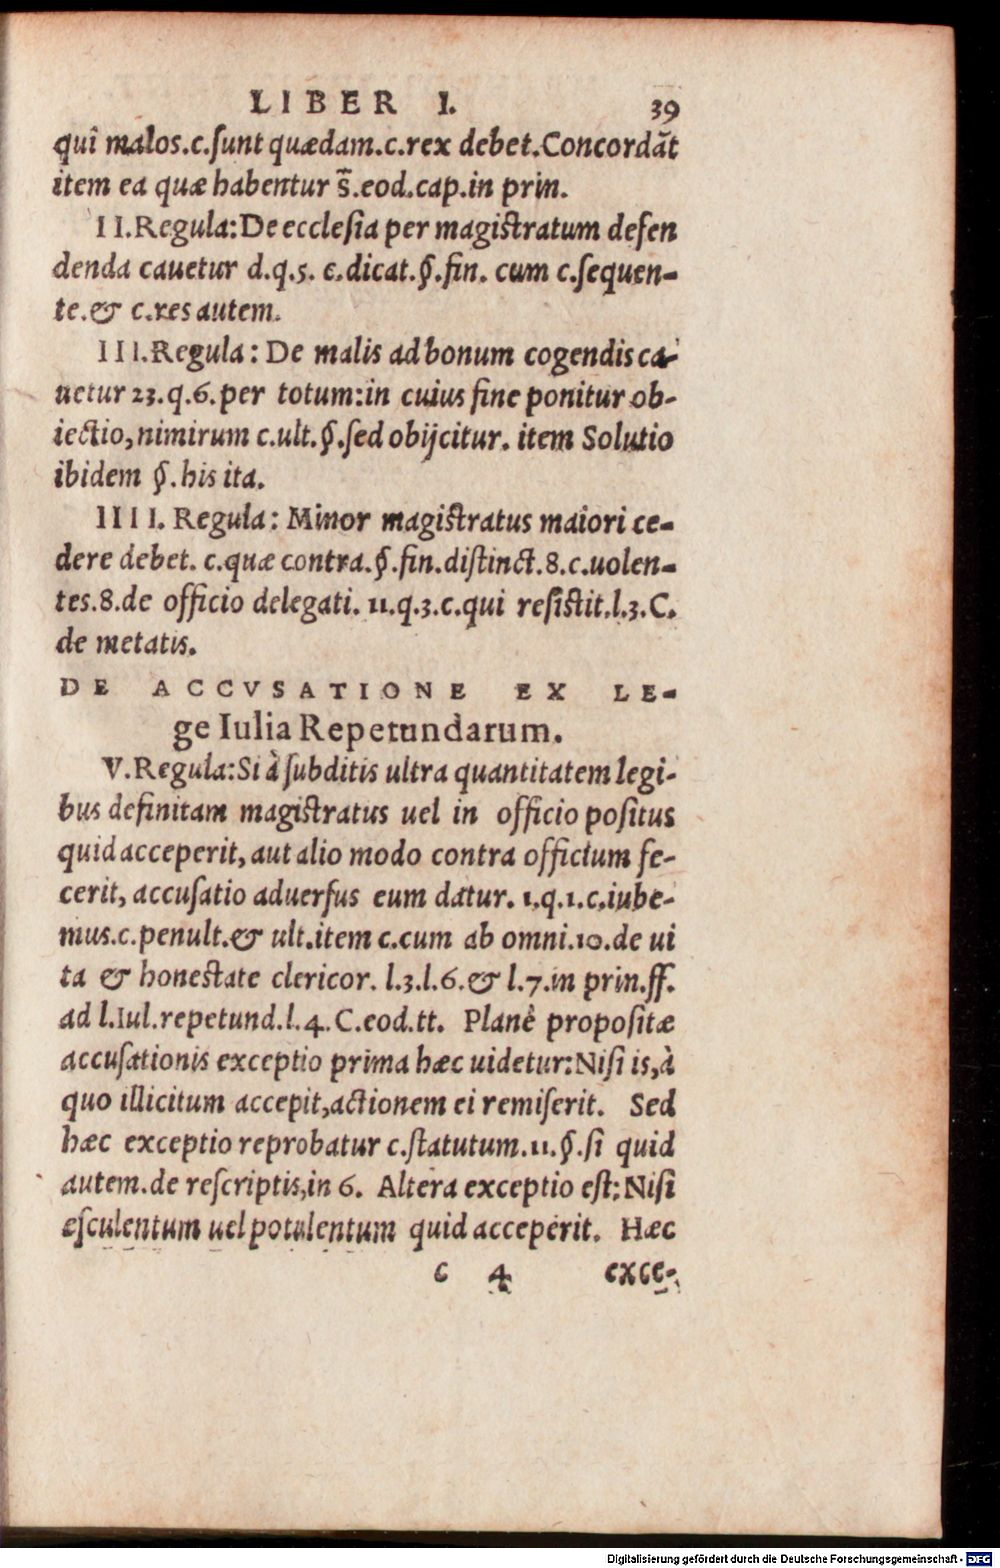 LIBER I. 39
qui malos.c.ſunt quædam.c.rex debet.Concordãt
item ea quæ habentur s̃.eod.cap.in prin.
II.Regula:De eccleſia per magiſtratum defen
denda cauetur d.q.5. c.dicat.§.fin. cum c.ſequen-
te.& c.res autem.
III.Regula: De malis ad bonum cogendis ca-
uetur 23.q.6.per totum:in cuius fine ponitur ob-
iectio,nimirum c.ult.§.ſed obijcitur. item Solutio
ibidem §.his ita.
IIII. Regula: Minor magiſtratus maiori ce-
dere debet. c.quæ contra.§.fin.diſtinct.8.c.uolen-
tes.8.de officio delegati. 11.q.3.c.qui reſiſtit.l.3.C.
de metatis.
DE ACCVSATIONE EX LE-
ge Iulia Repetundarum.
V.Regula:Si à ſubditis ultra quantitatem legi-
bus definitam magiſtratus uel in officio poſitus
quid acceperit, aut alio modo contra officium fe-
cerit, accuſatio aduerſus eum datur. 1.q.1.c.iube-
mus.c.penult.& ult.item c.cum ab omni.10.de ui
ta & honeſtate clericor. l.3.l.6.& l.7.in prin.ff.
ad l.Iul.repetund.l.4.C.eod.tt. Planè propoſitæ
accuſationis exceptio prima hæc uidetur:Niſi is,à
quo illicitum accepit,actionem ei remiſerit. Sed
hæc exceptio reprobatur c.ſtatutum.11.§.ſi quid
autem.de reſcriptis,in 6. Altera exceptio eſt:Niſi
eſculentum uel potulentum quid acceperit. Hæc
c 4 exce-
Digitalisierung gefördert durch die Deutsche Forschungsgemeinschaft - DFG